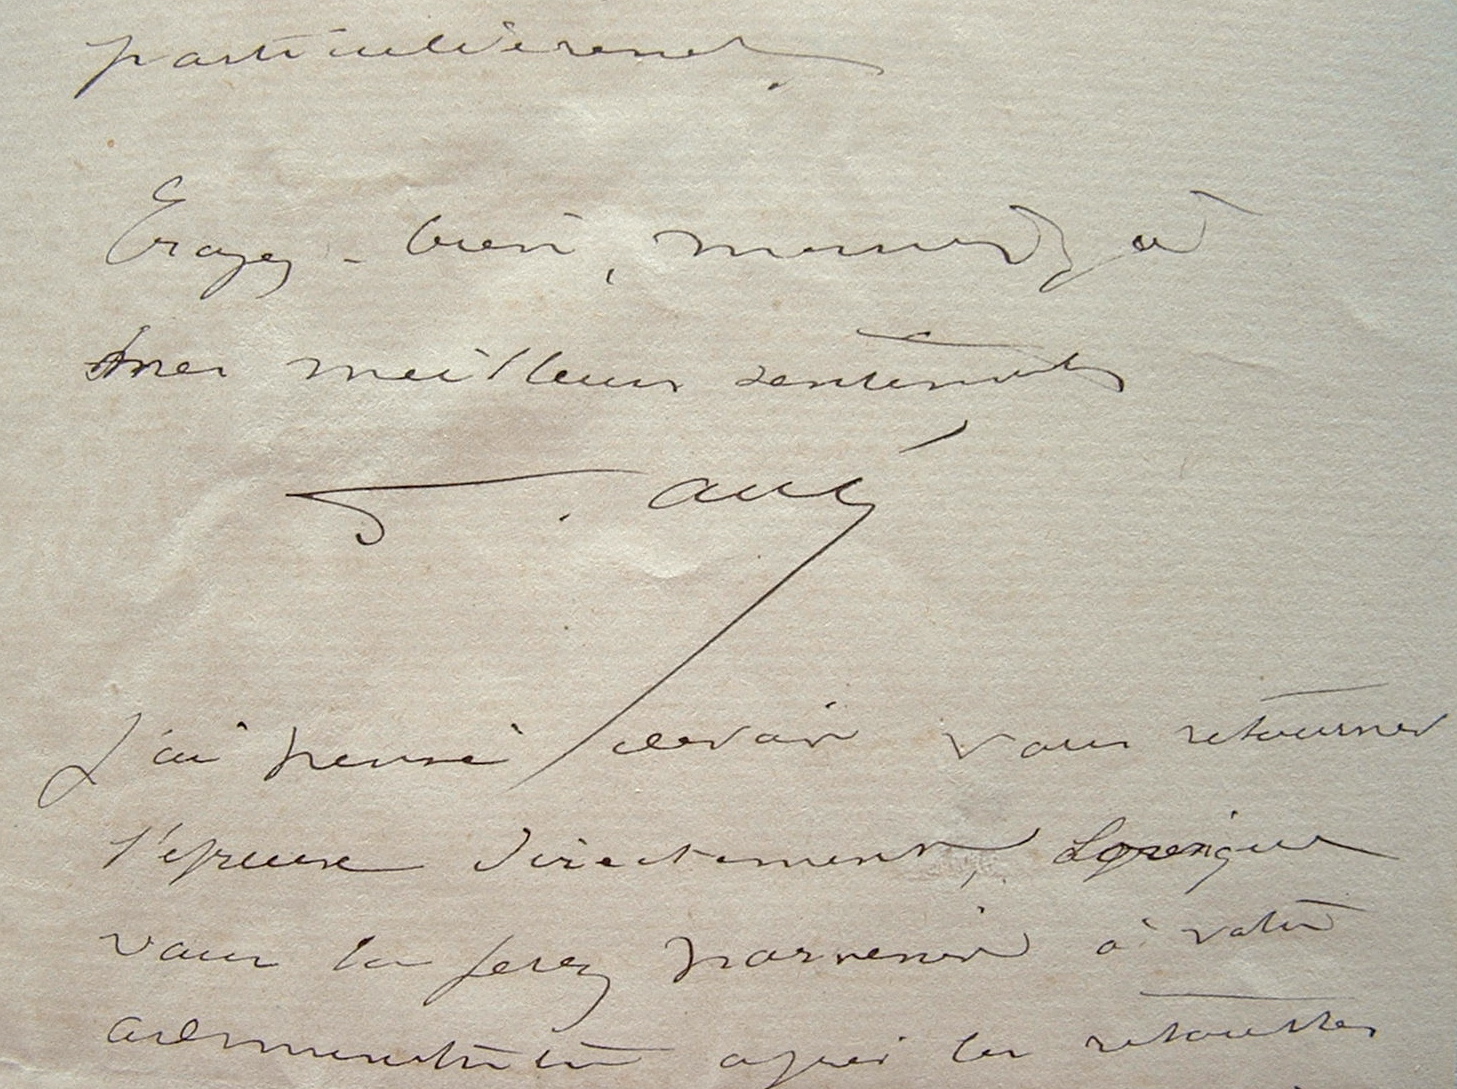 particulièrement.
Croyez-bien, monsieur, à
mes meilleurs sentiments
J'ai pensé devoir vous retourner
l'épreuve directement, Lorsque
vous la ferez parvenir à votre
administration après les retouches